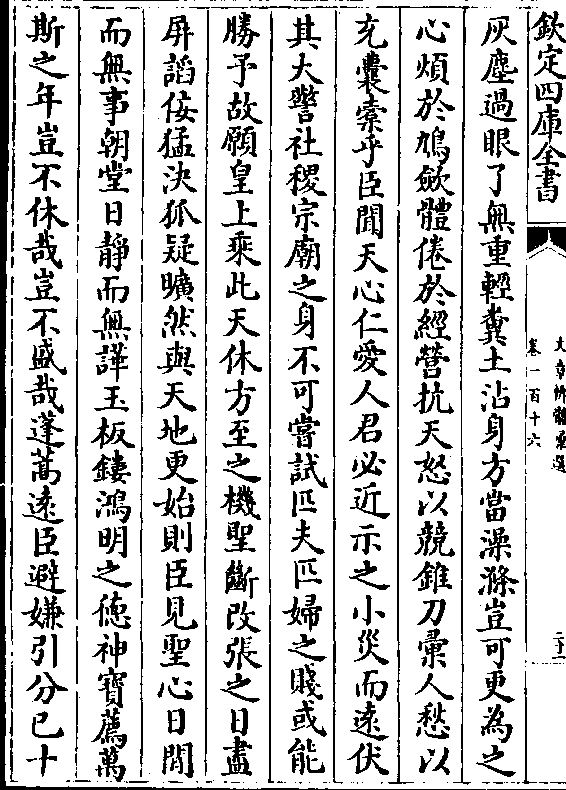 欽定四庫全書
文章辨體彙選
卷一百十六
灰塵過眼了無重輕糞土沾身方當澡滌豈可更為之
心煩於鳩斂體倦於經營抗天怒以競錐刀彙人愁以
充囊索乎臣聞天心仁愛人君必近示之小災而遠伏
其大警社稷宗廟之身不可嘗試匹夫匹婦之賤或能
勝予故願皇上乘此天休方至之機聖斷改張之日盡
屏諂佞猛決狐疑曠然與天地更始則臣見聖心日閒
而無事朝堂日靜而無譁玉板鏤鴻明之德神寶薦萬
斯之年豈不休哉豈不盛哉蓬蒿遠臣避嫌引分已十